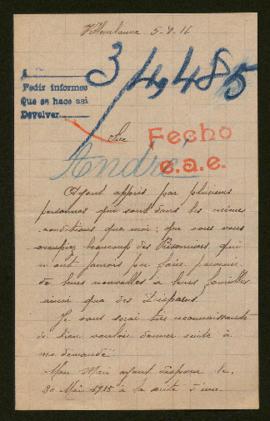 5-9-16
3/4,485
A
Pedir informes
Que se hace asi
Devolver
Sire
Fecho
e.a.e.
André
Ayant appris par plusieurs
personnes qui sont dans les mêmes
conditions que moi, que vous vous
occupiez beaucoup des Prisonniers qui
n'ont jamais pu faire parvenir
de leurs nouvelles a leurs familles
ainsi que des Disparus
Je vous serai très reconnaissante
de bien vouloir donner suite à
ma demande.
Mon Mari ayant disparu le
30 Mai 1915 à la suite d'une